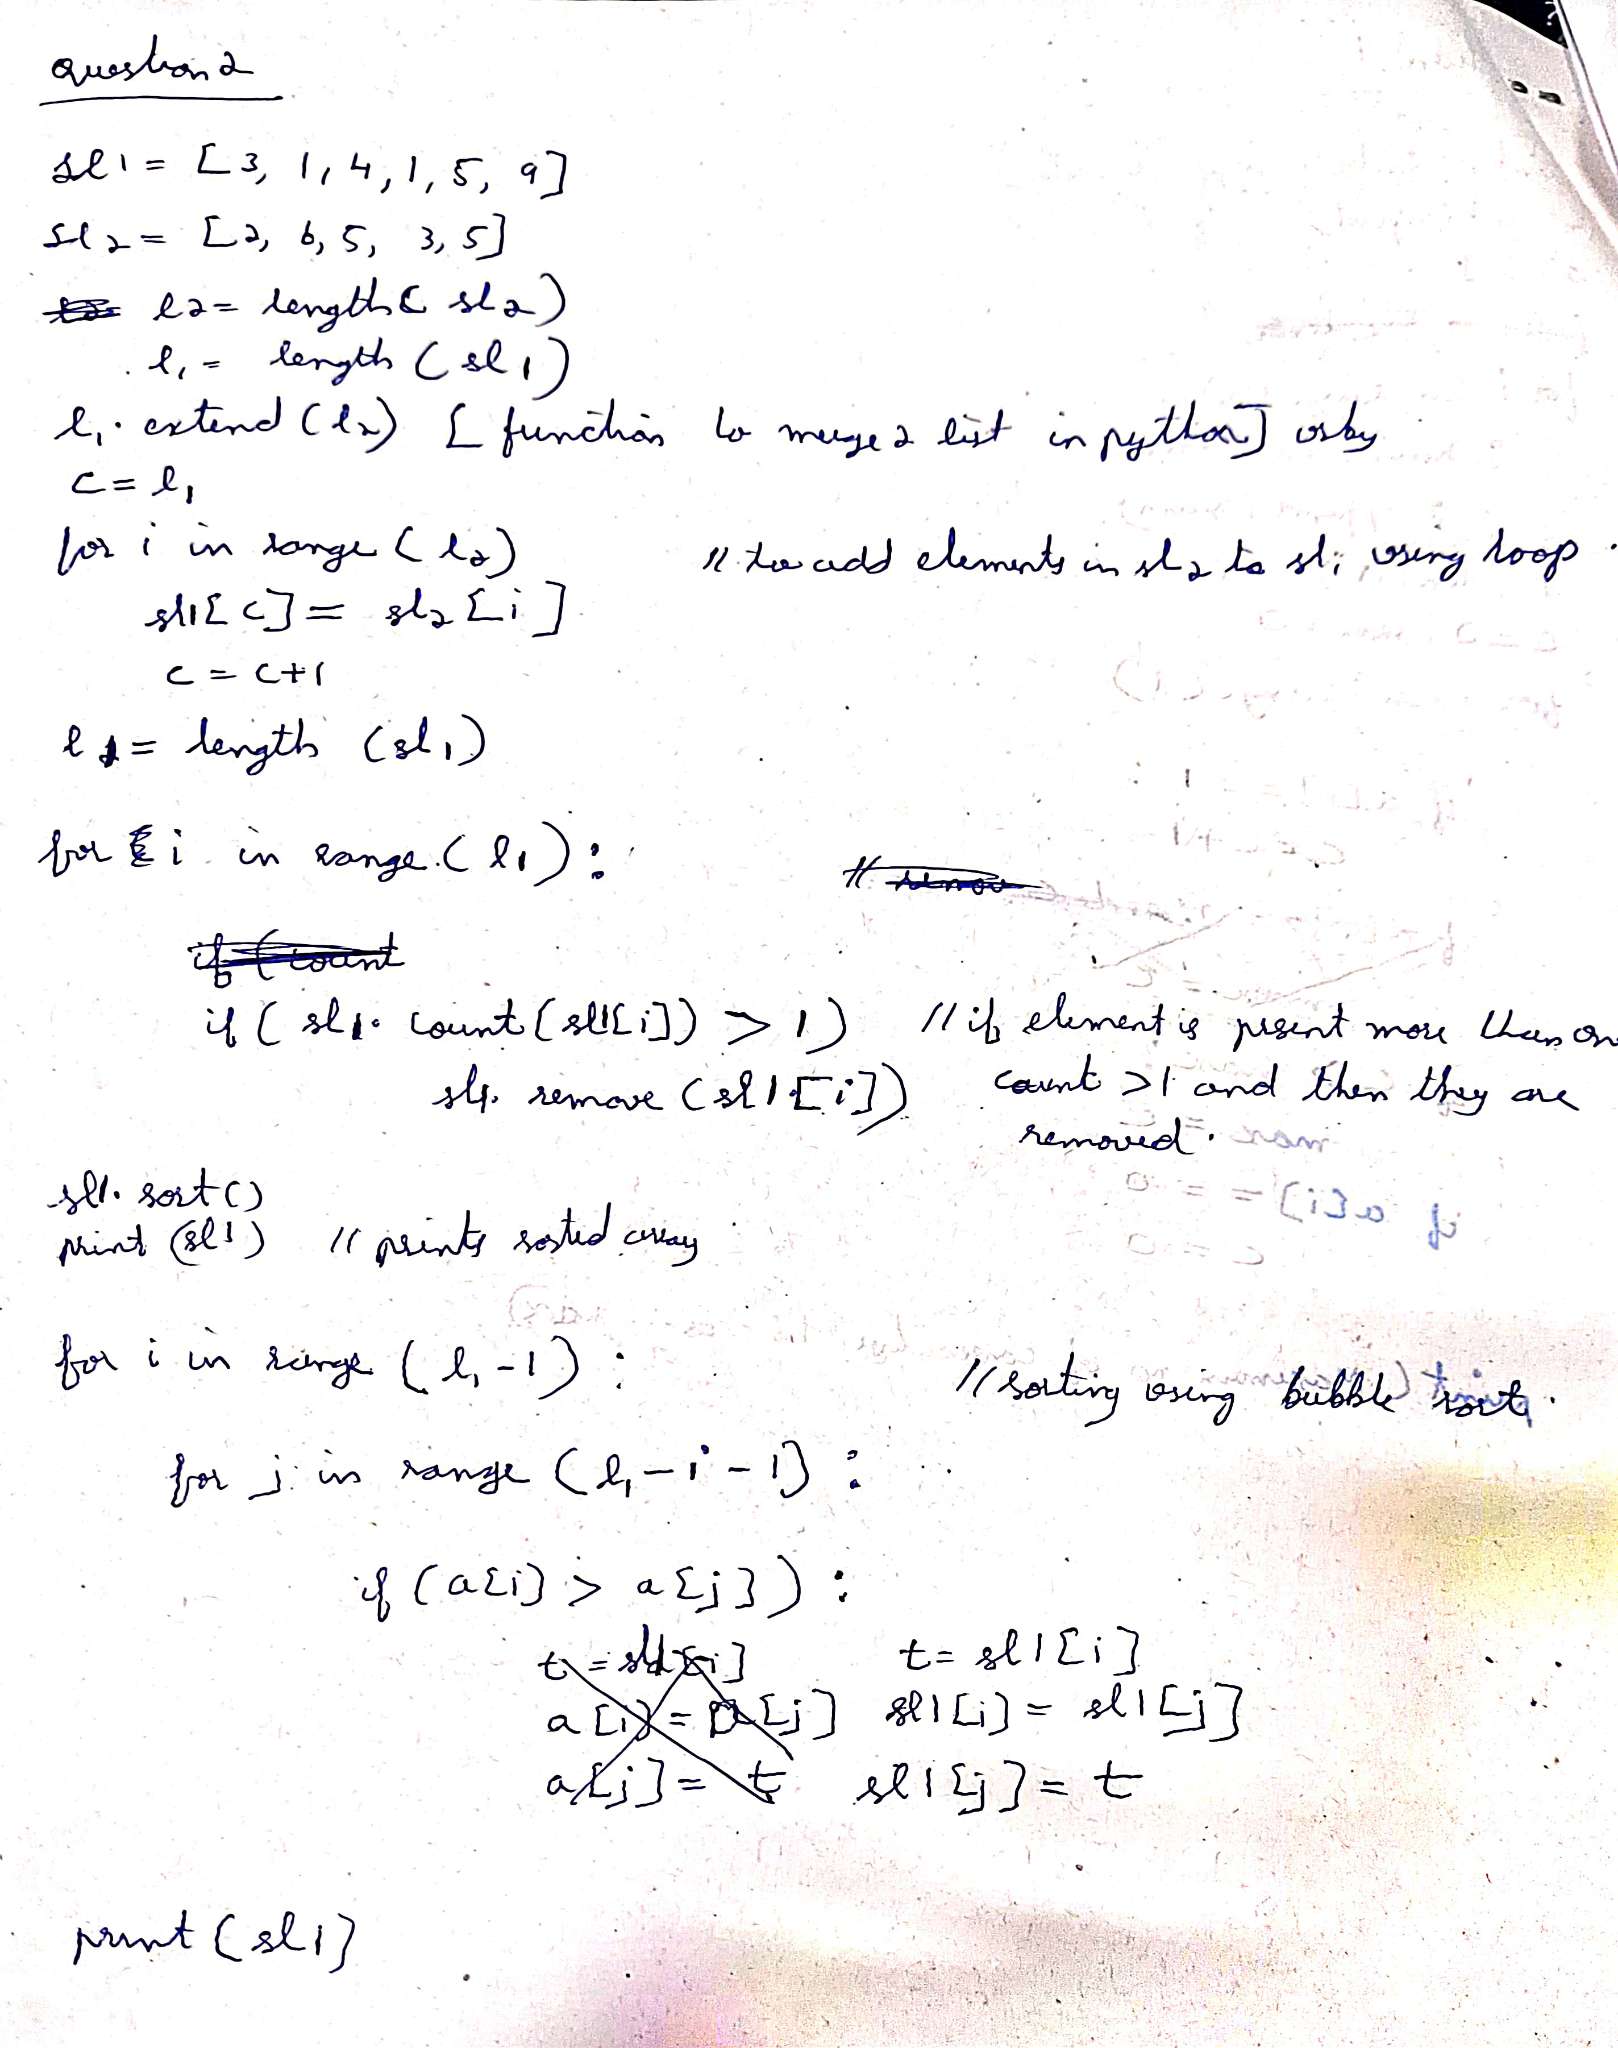 question 2
sl1 = [3, 1, 4, 1, 5, 9]
sl2 = [2, 6, 5, 3, 5]
l2 = length( sl2)
l1 = length (sl1)
l1. extend (l2) [ function to merge 2 list in python] or by
c = l1
for i in range (l2) // to add elements in sl2 to sl1 using loop.
sl1[c] = sl2[i]
c = c+1
l1 = length (sl1)
for i in range (l1):
if (count
if ( sl1. count (sl1[i]) > 1) // if element is present more than on
sl1. remove (sl1[i]) count >1 and then they are
removed.
sl1. sort ()
print (sl1) // prints sorted array
for i in range (l1 -1) : // sorting using bubble sort.
for j in range (l1 - i - 1) :
if (a[i] > a[j]) :
t = sl1[i] t = sl1[i]
a[i] = a[j] sl1[i] = sl1[j]
a[j] = t sl1[j] = t
print (sl1)